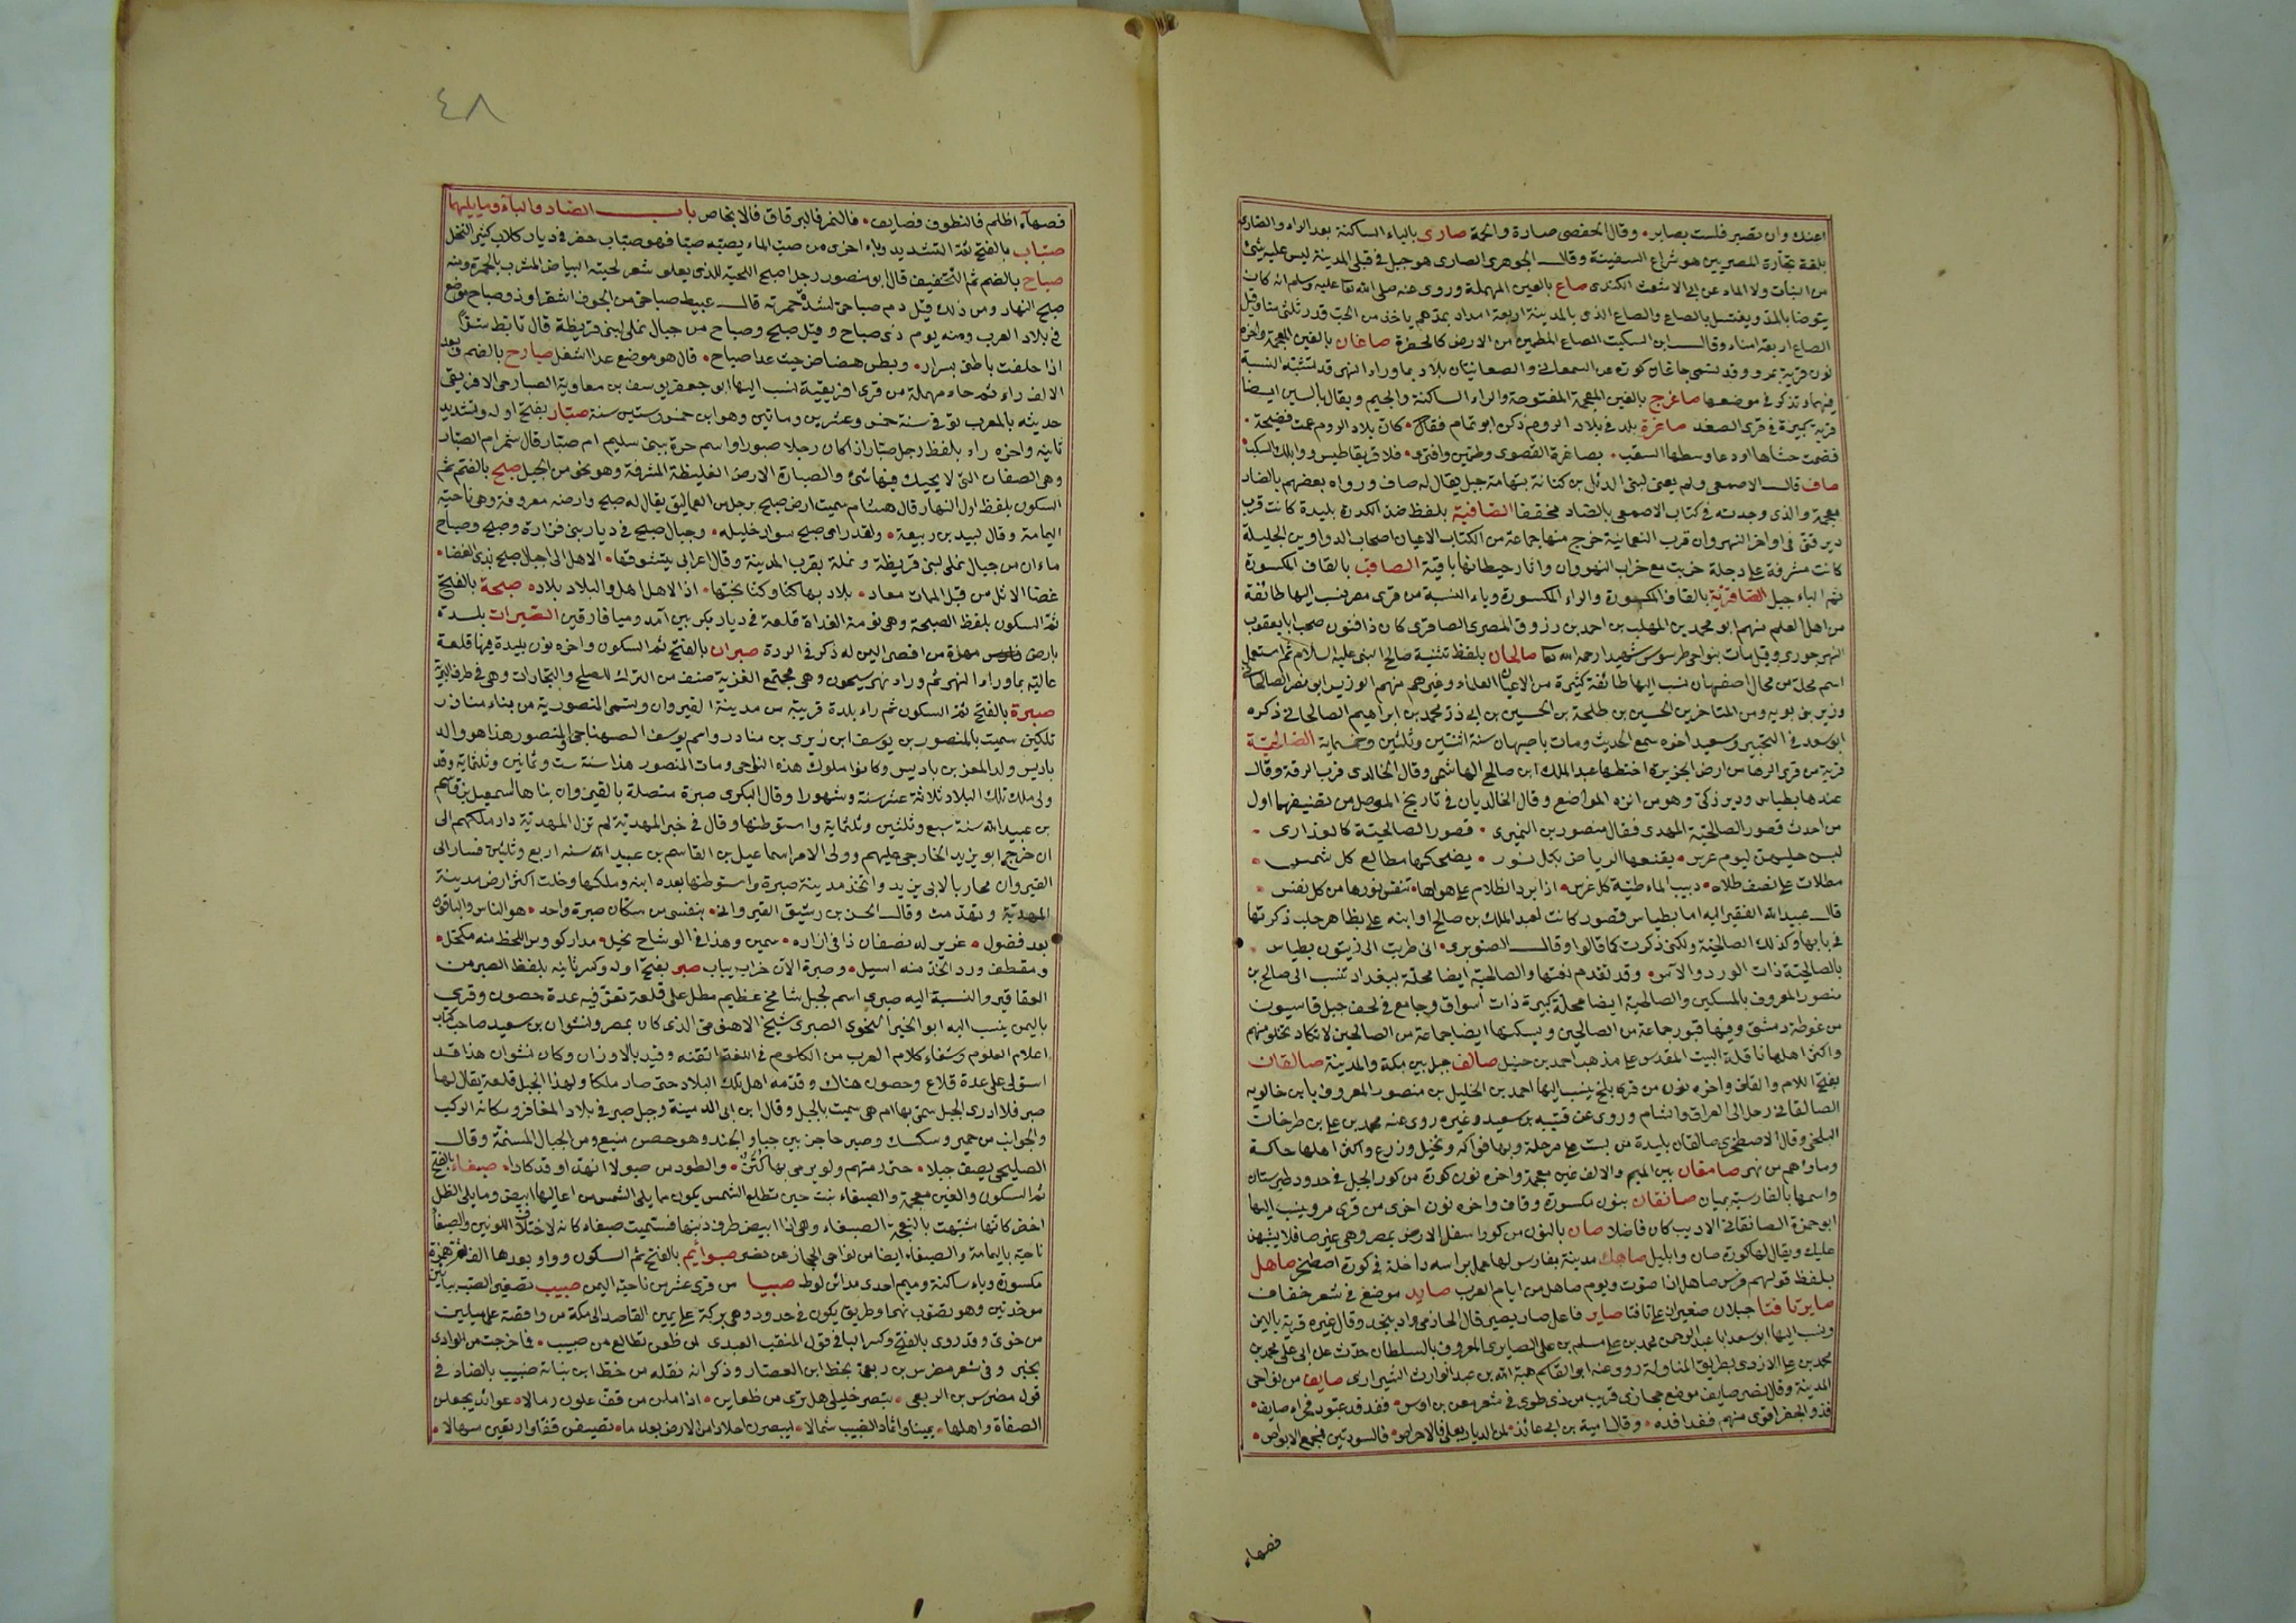 اعنك وان تصبر فلست بصابر • وقال الحفصى صارة واكمة صارى بالياء الساكنة بعد الراء والصارى
بلغة تجارة المصريين هو شراع السفينة وقال الجوهرى الصارى هو جبل فى قبلى المدينة ليس عليه شئ
من النبات ولا الماء عن ابى الاشعث الكندى صاع بالعين المهملة وروى عنه صلى الله تعا عليه وسلم انه كان
يتوضا بالمد ويغتسل بالصاع والصاع الذى بالمدينة اربعة امداد بمدهم ياخذ من الحب قدر ثلثى منا وقيل
الصاع اربعة امناء وقال ابن السكيت الصاع المطمين من الارض كالحفرة صاغان بالغين المعجمة واخره
نون قرية بمرو وقد تسمى جاغان كوه عن السمعانى والصغانيان بلاد بماوراء النهر قد تشتبه النسبة
فيهما وتذكر فى موضعها صاغرج بالغين المعجمة المفتوحة والراء الساكنة والجيم ويقال بالسين ايضا
قرية كبيرة فى قرى الصغد صاغرة بلد فى بلاد الروم ذكره ابو تمام فقال • كان بلاد الروم عمت فصيحة •
فضمت حشاها اودعا وسطها السقب • بصاغرة القصوى وطمين واقترى • فلا قريقاطيس ووابلك السكب
صاف قال الاصمعى ولم يعنى لبنى الدئل بن كنانة بتهامة جبل يقال له صاف ورواه بعضهم بالضاد
معجمة والذى وجدته فى كتاب الاصمعى بالضاد مخففا الصافية بلفظ ضد الكدرة بليدة كانت قرب
دير قنى فى اواخر النهروان قرب النعمانية خرج منها جماعة من الكتاب الاعيان اصحاب الدواوين الجليلة
كانت مشرفة على دجلة خربت مع خراب النهروان واثار حيطانها باقية الصاقب بالقاف المكسورة
ثم الباء جبل الصاقرية بالقاف المكسورة والراء المكسورة وياء النسبة من قرى مصر ينسب اليها طائفة
من اهل العلم منهم ابو محمد بن المهلب بن احمد بن رزوق المصرى الصاقرى كان ذا فنون صحب ابا يعقوب
النهرجورى وقيل مات بنواحى طرسوس شهيدا رحمه الله تعا صالحان بلفظ تثنية صالح النبى عليه السلام ثم استعمل
اسم محلة من محال اصفهان نسب اليها طائفة كثيرة من الاعيان العلماء وغيرهم منهم الوزير ابو نصر الصالحانى
وزير بنى بويه ومن المتاخرين الحسين بن طلحة بن الحسين بن ابى ذر محمد بن ابراهيم الصالحانى ذكره
ابو سعد فى التحبير وسعيد اخوه سمع الحديث ومات باصبهان سنة اثنتين وثلثين وخمسماية الصالحية
قرية من قرى الرها من ارض الجزيرة اختطها عبد الملك ابن صالح الهاشمى وقال الخالدى قرب الرقة وقال
عندها بطياس ودير زكى وهو من انزه المواضع وقال الخالديان فى تاريخ الموصل من تصنيفهما اول
من احدث قصور الصالحية المهدى فقال منصور بن النميرى • قصور الصالحية كالعذارى •
لبسن حليهن ليوم عرس • يقنعها الرياض بكل نور • يضحكها مطالع كل شمس •
مطلات على نصف طلاه • دبيب الماء طيبة كل غرس • اذا برد الظلام على هواها • تنفس نورها من كل نفس •
قال عبيد الله الفقير اليه اما بطياس فقصور كانت لعبد الملك بن صالح او ابنه على بظاهر حلب ذكرتها
فى بابها وكذلك الصالحية ولكنى ذكرت كما قالوا وقال الصنوبرى • انى طربت الى زيتون بطياس •
بالصالحية ذات الورد والآس • وقد تقدم نعتها والصالحية ايضا محلة ببغداد تنسب الى صالح بن
منصور المعروف بالمسكين والصالحية ايضا محلة كبيرة ذات اسواق وجامع فى لحف جبل قاسيون
من غوطة دمشق وفيها قبور جماعة من الصالحين ويسكنها ايضا جماعة من الصالحين لا تكاد تخلو منهم
واكثر اهلها ناقلة البيت المقدس على مذهب احمد بن حنبل صالف جبل بين مكة والمدينة صالقان
بفتح اللام والقاف واخره نون من قرى بلخ ينسب اليها احمد بن الخليل بن منصور المعروف بابن خالويه
الصالقانى رحل الى العراق والشام وروى عن قتيبه بن سعيد وغيره روى عنه محمد بن على بن طرخان
البلخى وقال الاصطخرى صالقان بليدة من بست على مرحلة وبها فواكه ونخيل وزرع واكثر اهلها حاكة
وماؤهم من نهر صامغان بين الميم والالف غين معجمة واخره نون كورة من كور الجبل فى حدود طبرستان
واسمها بالفارسية بميان صانقان بنون مكسورة وقاف واخره نون اخرى من قرى مرو ينسب اليها
ابو حمزة الصانقانى الاديب كان فاضلا صان بالنون من كور اسفل الارض بمصر وهى غير صا فلا يشبهن
عليك ويقال لها كورة صان وابليل صاهك مدينة بفارس لها عمل براسه داخلة فى كورة اصطخر صاهل
بلفظ قولهم فرس صاهل اذا صوت ويوم صاهل من ايام العرب صايد موضع فى شعر خفاف
صايرتا فتا جبلان صغيران على تافتا صاير فاعل صار يصير قال الحازمى واد بنجد وقال غيره قرية باليمن
وينسب اليها ابو سعد ابا عبد الرحمن محمد بن على مسلم بن على الصايرى المعروف بالسلطان حدث عن ابى على محمد بن
محمد بن على الازدى بطريق المناولة روى عنه ابو القاسم هبة الله بن عبد الوارث الشيرازى صايف من نواحى
المدينة وقال نصر صايف موضع حجازى قريب من ذى طوى فى شعر معن بن اوس • ففدفد عبود فخبراء صايف •
فذو الجفر اقوى منهم ففدافده • وقال امية بن ابى عائذ • لمن الديار بعلى فالاحراص • فالسودتين فمجمع الابواص •
فصهاء
٤٨
فصهآء اظلم فالنطوف فصايف • فالنمر فالبرقاق فالانحاص باب الصاد والباء وما يليهما
صباب بالفتح ثم التشديد وباء اخرى من صب الماء يصبه صبا فهو صباب حفر فى ديار كلاب كثير النخل
صباح بالضم ثم التخفيف قال ابو منصور رجل اصبح اللحية للذى يعلو شعر لحيته البياض المشرب بالحمرة ومنه
صبح النهار ومن ذلك قيل دم صباحى لشدة حمرته قال عبيط صباحى من الجوف اشقرا وذو صباح موضع
فى بلاد العرب ومنه يوم ذى صباح وقيل صبح وصباح من جبال نملى لبنى قريظة قال تابط شرا
اذا خلفت باطنى بسرار • وبطن هضاض حيث غدا صباح • قال هو موضع غدا اسفل صبارح بالضم وبعد
الالف راء ثم حاء مهملة من قرى افريقية نسب اليها ابو جعفر يوسف بن معاوية الصبارحى الافريقى
حديثه بالمغرب توفى سنة خمس وعشرين وماتين وهو ابن خمس وستين سنة صبار بفتح اوله وتشديد
ثانيه واخره راء بلفظ رجل صبار اذا كان رجلا صبورا واسم حرة ببنى سليم ام صبار قال شمر ام الصبار
وهى الصفاة التى لا يحيك فيها شئ والصبارة الارض الغليظة المشرفة وهو نحو من الجبل صبح بالضم ثم
السكون بلفظ اول النهار قال هشام سميت ارض صبح برجل من العماليق يقال له صبح وارضه معروفة وهى ناحية
اليمامة وقال لبيد بن ربيعة • ولقد راى صبح سواد خليله • وجبال صبح فى ديار بنى فزارة وصبح وصباح
ماءان من جبال نملى لبنى قريظة ونملة بقرب المدينة وقال اعرابى يتشوقها • الا هل الى اجبال صبح بذى الغضا •
غضا الاثل من قبل الممات معاد • بلاد بها كنا وكنا نحبها • اذ الاهل اهل والبلاد بلاده صبحة بالفتح
ثم السكون بلفظ الصبحة وهى نومة الغداة قلعة فى ديار بكر بين آمد وميافارقين الصبرات بلدة
بارض مهرة من اقصى اليمن له ذكر فى الردة صبران بالفتح ثم السكون واخره نون بليدة فيها قلعة
عالية بماوراء النهر ثم وراء نهر سيحون وهى مجتمع الغزية صنف من الترك للصلح والتجارات وهى فى طرف البرية
صبرة بالفتح ثم السكون ثم راء بلدة قريبة من مدينة القيروان وتسمى المنصورية من بناء مناد بن
بلكين سميت بالمنصور بن يوسف ابن زيرى بن مناد واسم يوسف الصنهاجى والمنصور هذا هو والد
باديس ولد المعز بن باديس وكانوا ملوك هذه النواحى ومات المنصور هذا سنة ست وثمانين وثلثماية وقد
ولى ملك تلك البلاد ثلاثة عشر سنة وشهورا وقال البكرى صبرة متصلة بالقيروان بناها اسمعيل بن قاسم
بن عبيد الله سنة سبع وثلثين وثلثماية واستوطنها وقال فى خبر المهدية لم تزل المهدية دار ملكهم الى
ان خرج ابو يزيد الخارجى عليهم وولى الامر اسماعيل بن القاسم بن عبيد الله سنة اربع وثلثين فسار الى
القيروان محاربا لابى يزيد واتخذ مدينة صبرة واستوطنها بعده ابنه وملكها وخلت اكثر ارض مدينة
المهدية وتهدمت وقال الحسن بن رشيق القيروانى • بنفسى من سكان صبرة واحد • هو الناس والباقون
بعد فضول • عزيز له نصفان ذا فى ازاره • سمين وهذا فى الوشاح نحيل • مدار كؤوس اللحظ منه مكحل •
ومقطف ورد الخد منه اسيل • وصبرة الآن خراب يباب صبر بفتح اوله وكسر ثانيه بلفظ الصبر من
العقاقير والنسبة اليه صبرى اسم لجبل شامخ عظيم مطل على قلعة تعز فيه عدة حصون وقرى
باليمن ينسب اليه ابو الخير النحوى الصبرى شيخ الاهنومى الذى كان بمصر ونشوان بن سعيد صاحب كتاب
اعلام العلوم وشفاء كلام العرب من الكلوم فى اللغة اتقنه وقيد بالاوزان وكان نشوان هذا قد
استولى على عدة قلاع وحصون هناك وقدمه اهل تلك البلاد حتى صار ملكا ولهذا الجبل قلعة يقال لها
صبر فلا ادرى الجبل سمى بها ام هى سميت بالجبل وقال ابن ابى الدمينة وجبل صبر فى بلاد المعافر وسكانه الركب
والجوانب من حمير وسكسك وصبر حاجز بين جبا والجند وهو حصن منيع ومن الجبال المسنمة وقال
الصليحى يصف جبلا • حتى رمتهم ولو يرمى بها كثن • والطود من صبو لا انهد او قد كادا • صبغاء بالفتح
ثم السكون والغين معجمة والصبغاء نبت حين تطلع الشمس يكون ما يلى الشمس من اعاليها ابيض وما يلى الظل
اخضر كانها شبهت بالنعجة الصبغاء وهى اذا ابيض طرف ذنبها فسميت صبغاء كانه لاختلاف اللونين والصبغا
ناحية باليمامة والصبغاء ايضا من نواحى الحجاز عن نصر صبوائيم بالفتح ثم السكون وواو بعدها الف ثم همزة
مكسورة وياء ساكنة وميم احدى مدائن لوط صبيا من قرى عشر من ناحية اليمن صبيب تصغير الصب ببائين
موحدتين وهو تصوب نهر او طريق يكون فى حدود وهى بركة على يمين القاصد الى مكة من واقصة على ميلين
من خوى وقد روى بالفتح وكسر البا فى قول المثقب العبدى لمن ظعن تطالع من صبيب • فما خرجت من الوادى
بخير وفى شعر مضرس بن ربعى بخط ابن العصار وذكر انه نقله من خط ابن نباتة ضبيب بالضاد فى
قول مضرس بن الربعى • تبصر خليلى هل ترى من ظعاين • اذا ملن من قف علون رمالا • عوائد يجعلن
الصفاة واهلها • يمينا واثماد الضبيب شمالا • ليبصرن اجلادا من الارض بعد ما • تصيفن قفا وارتقين سهالا •